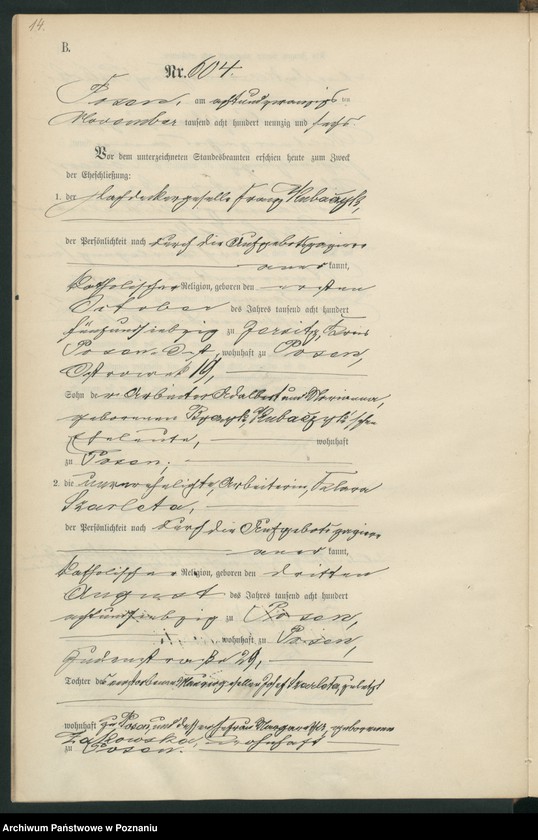 14.
B.
Nr. 604.
Posen, am achtundzwanzigsten
November tausend acht hundert neunzig und sechs
Vor dem unterzeichneten Standesbeamten erschien heute zum Zweck
der Eheschließung:
1. der Dachdeckergeselle Franz Kubaczyk,
der Persönlichkeit nach durch die Aufgebotspapiere
aner kannt,
katholischer Religion, geboren den ersten
October des Jahres tausend acht hundert
fünfundsiebzig zu Jersitz, Kreis
Posen-Ost, wohnhaft zu Posen,
Ostrowek 19,
Sohn der Arbeiter Adalbert und Marianna,
geborenen Kubaczyk'schen
Eheleute, wohnhaft
zu Posen,
2. die unverehelichte, Arbeiterin, Klara
Szarleta,
der Persönlichkeit nach durch die Aufgebotspapiere
aner kannt,
katholischer Religion, geboren den dritten
August des Jahres tausend acht hundert
achtundsiebzig zu Posen,
wohnhaft zu Posen,
Judenstraße 29,
Tochter des verstorbenen Maurergesellen Josef Szarleta, zuletzt
wohnhaft zu Posen, und dessen Ehefrau Margaretha, geborenen
zu Posen. wohnhaft
Archiwum Państwowe w Poznaniu